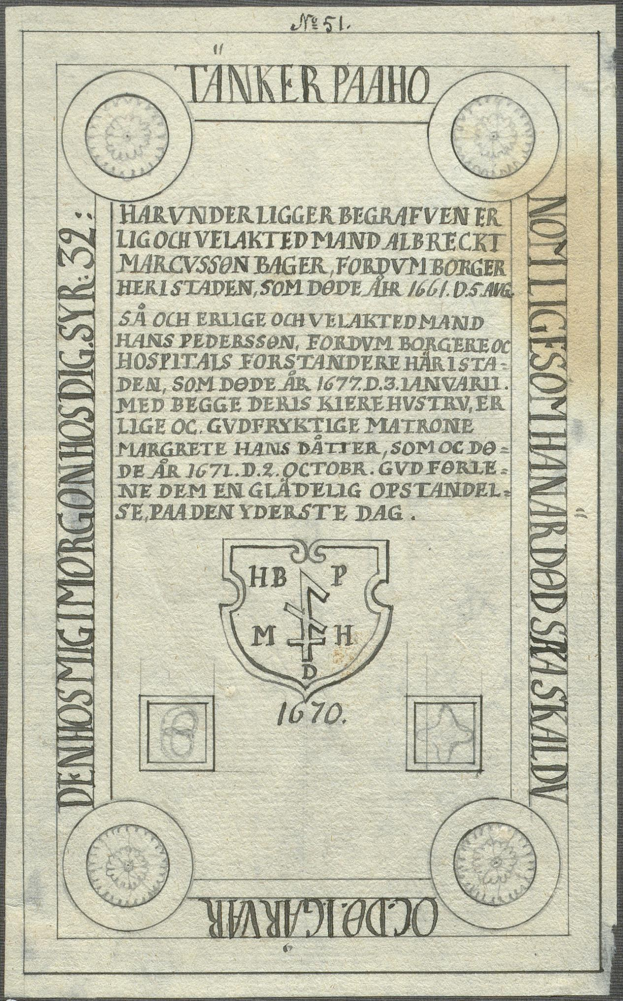 No 51.
TÄNKER PAAHO
NOM LIGESOM HAN AR DØD SAA SKAL DV
OC.DØ.IGÅR VAR
DEN HOS MIG I MORGON HOS DIG. SYR: 32:
HAR VNDER LIGGER BEGRAFVEN ER
LIG OCH VELAKTED MAND ALBRECKT
MARCVSSØN BAGER, FORDVM BORGER
HER I STADEN, SOM DØDE ÅIR 1661.D.5 AVG.
SÅ OCH ERLIGE OCH VELAKTED MAND
HANS PEDERSSØN, FORDVM BORGERE OC
HOSPITALS FORSTANDERE HÄR I STA=
DEN, SOM DØDE ÅR 1677.D.3.IANVARII.
MED BEGGE DERIS KIERE HVSTRV, ER
LIGE OC. GVDFRYKTIGE MATRONE
MARGRETE HANS DÅTTER, SOM OC DØ=
DE ÅR 1671.D.2.OCTOBR. GVD FØRLE=
NE DEM EN GLÄDELIG OPSTANDEL=
SE, PAA DEN YDERSTE DAG.
HB P
M H
D
1670.